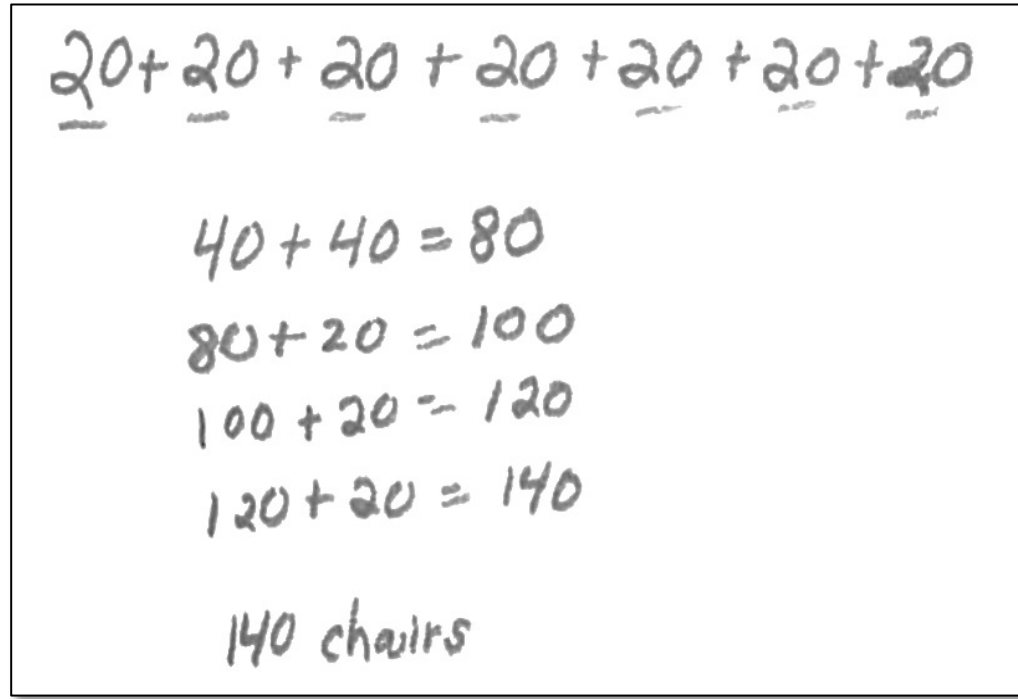 20+20+20+20+20+20+20
40+40=80
80+20=100
100+20=120
120+20=140
140 chairs